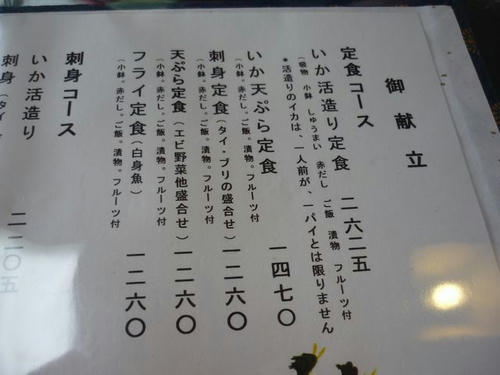 御献立
定食コース
いか活造り定食 二六二五
(吸物 小鉢 しゅうまい 赤だし ご飯 漬物 フルーツ付
*活造りのイカは、一人前が、一パイとは限りません
いか天ぷら定食 一四七〇
(小鉢。赤だし。ご飯。漬物。フルーツ付
刺身定食(タイ・ブリの盛合せ) 一二六〇
(小鉢。赤だし。ご飯。漬物。フルーツ付
天ぷら定食(エビ野菜他盛合せ) 一二六〇
(小鉢。赤だし。ご飯。漬物。フルーツ付
フライ定食(白身魚) 一二六〇
(小鉢。赤だし。ご飯。漬物。フルーツ付
刺身コース
いか活造り 二一〇五
刺身(タイ